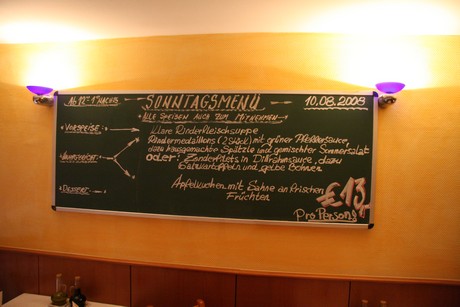 SONNTAGSMENÜ
10.08.2008
Alle Speisen auch zum Mitnehmen
Vorspeise
Klare Rinderfleischsuppe
Rindermedaillons (2 Stück) mit grüner Pfeffersauce,
dazu hausgemachte Spätzle und gemischter Sommersalat
Hauptgericht
oder: Zanderfilets in Dillrahmsauce, dazu
Salzkartoffeln und gelbe Bohnen
Dessert
Apfelkuchen mit Sahne an frischen
Früchten
€ 13,-
Pro Person